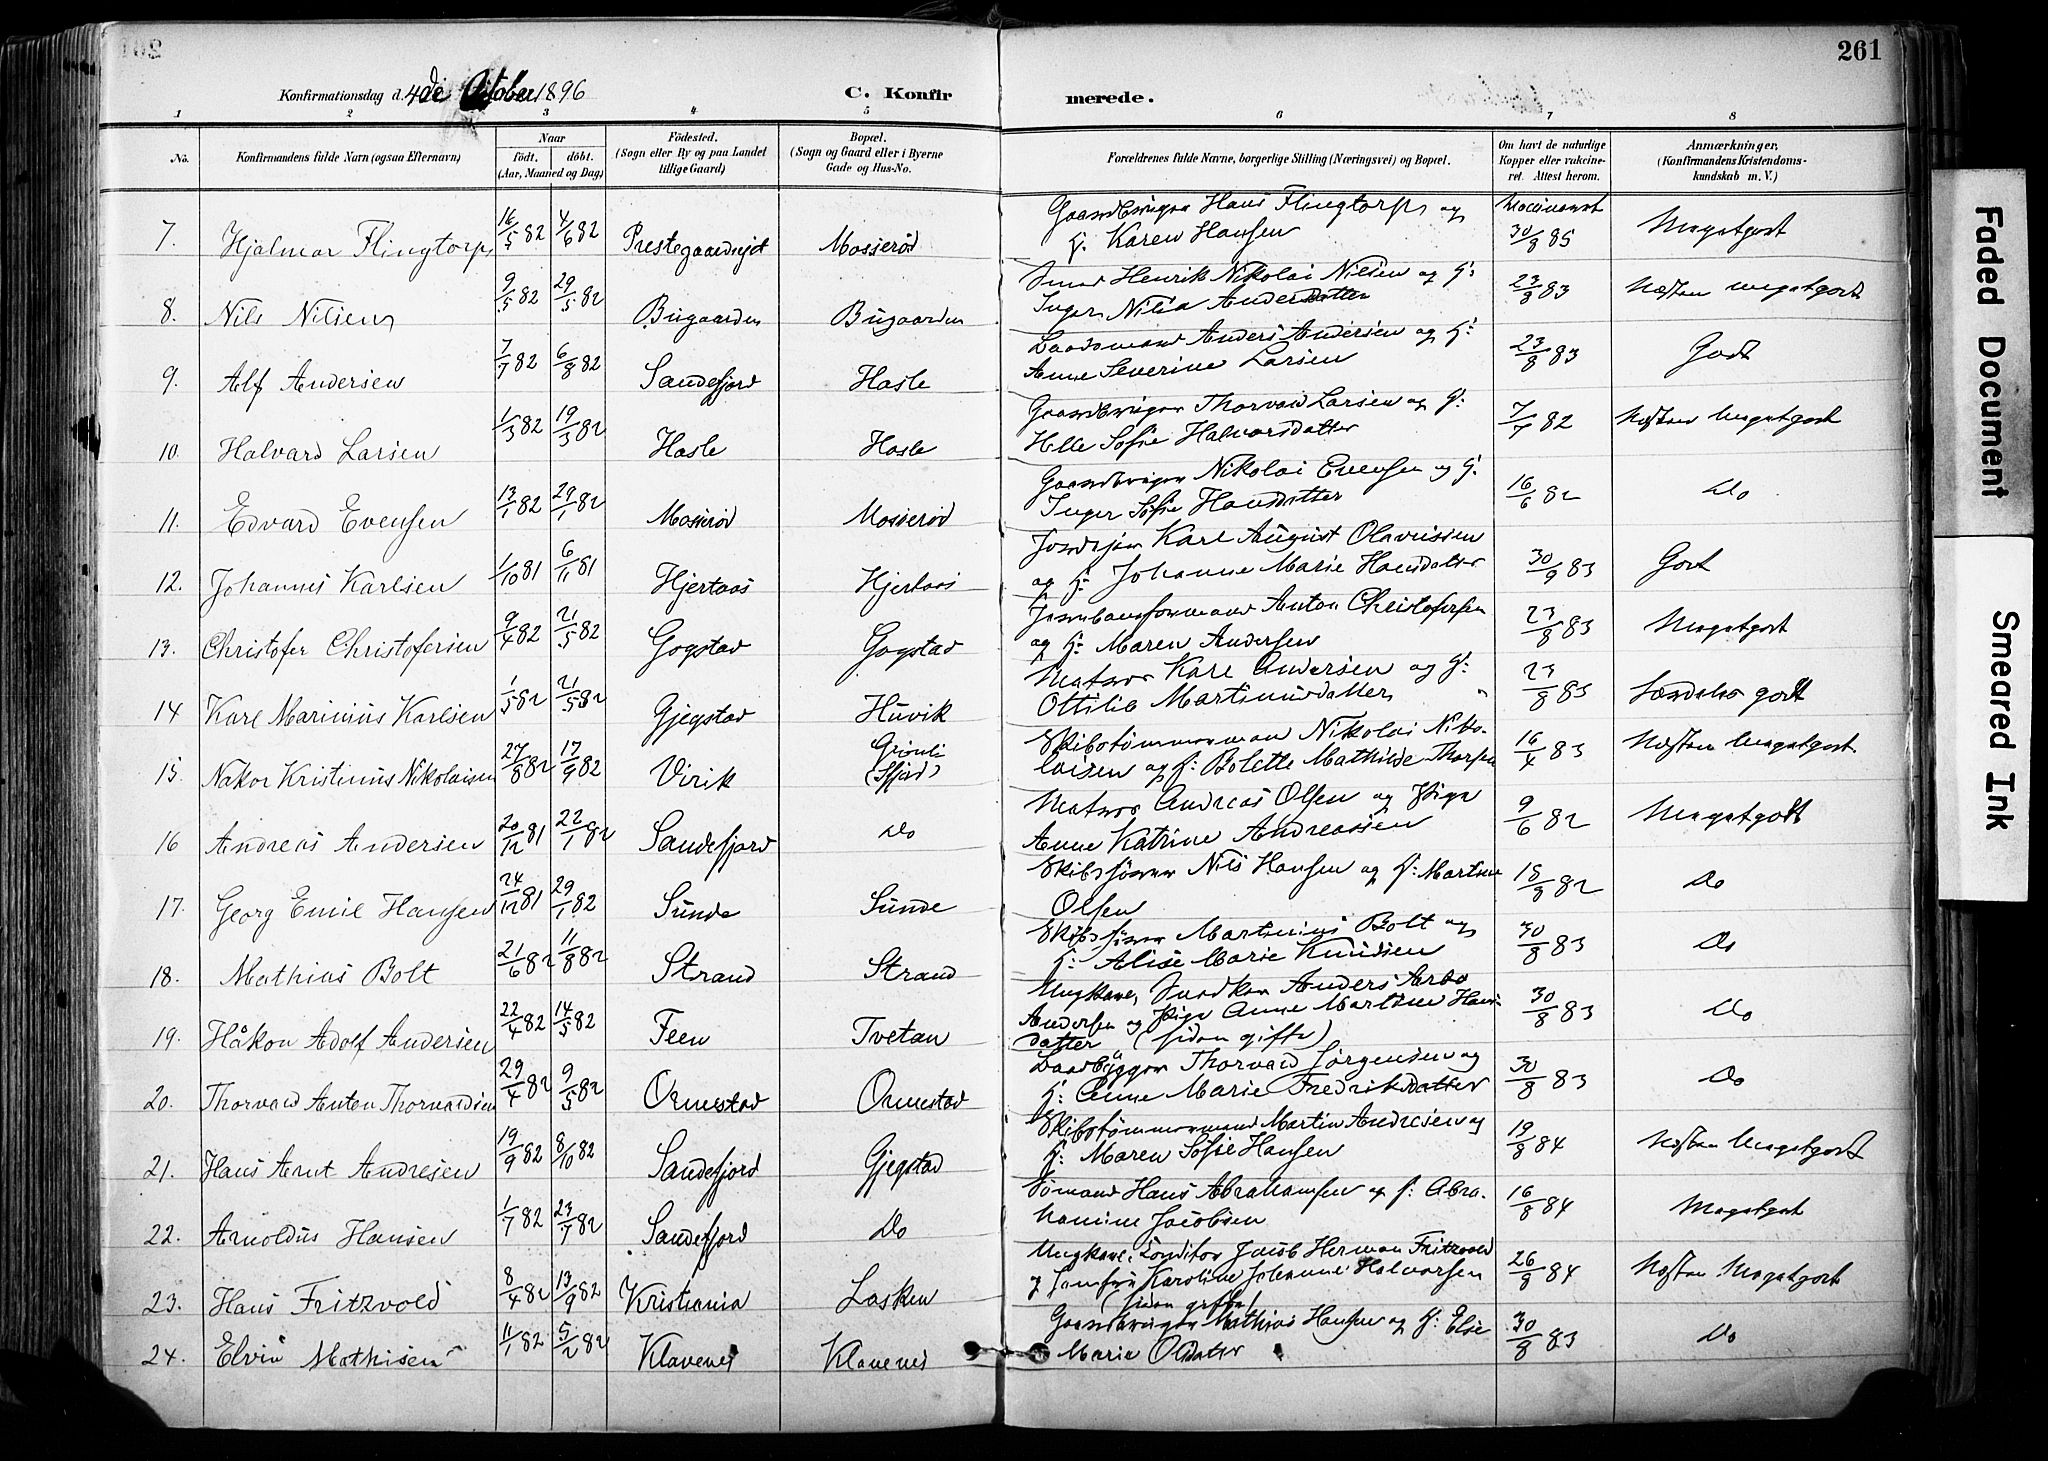 261
Konfirmationsdag d. 4de Oktober 1896 C. Konfir merede.
1 2 3 4 5 6 7 8
No. Konfirmandens fulde Navn (ogsaa Efternavn) Naar født. døbt. (Aar, Maaned og Dag) Födested. (Sogn eller By og paa Landet tillige Gaard) Bopæl. (Sogn og Gaard eller i Byerne Gade og Hus-No. Forældrenes fulde Navne, borgerlige Stilling (Næringsvei) og Bopæl. Om havt de naturlige Kopper eller vakcineret. Attest herom. Anmærkninger, (Konfirmandens Kristendomskundskab m. V.)
7. Hjalmar Flingtorp 16/5 82 4/6 82 Prestegaardsejet Mosserød Gaardbruger Hans Flingtorp og H: Karen Hansen Vaccineret 30/8 85 Megetgodt
8. Nils Nilsen 9/5 82 29/5 82 Bugaarden Bugaarden Smed Henrik Nikolai Nilsen og H: Inger Nilia Andersdatter 23/8 83 Næsten megetgodt
9. Alf Andersen 7/7 82 6/8 82 Sandefjord Hasle Baadsmand Anders Andersen og H: Anne Severine Larsen 23/8 83 Godt
10. Halvard Larsen 1/3 82 19/3 82 Hasle Hasle Gaardbruger Thorvald Larsen og H: Helle Sofie Halvorsdatter 7/7 82 Næsten Megetgodt
11. Edvard Evensen 13/1 82 29/1 82 Mosserød Mosserød Gaardbruger Nikolai Evensen og H: Inger Sofie Hansdatter 16/6 82 Do
12. Johannes Karlsen 1/10 81 6/11 81 Hjertaas Hjertaas Jordejer Karl August Olavussen og H: Johanne Marie Hansdatter 30/9 83 Godt
13. Christofer Christofersen 9/4 82 21/5 82 Gogstad Gogstad Jernbaneformand Anton Christofersen og H: Maren Andersen 23/8 83 Megetgodt
14 Karl Marinius Karlsen 1/5 82 21/5 82 Gjegstad Huvik Matros Karl Andersen og H: Ottilie Martinusdatter 23/8 83 Særdeles godt
15 Nakor Kristinus Nikolaisen 27/8 82 17/9 82 Virik Grønli (Sfjord) Skibstømmermand Nikolai Nikolaisen og H: Bolette Mathilde Thorsen 16/4 83 Næsten Megetgodt
16 Andreas Andersen 20/12 81 22/1 82 Sandefjord Do Matros Andreas Olsen og Pige Anne Katrine Andreassen 9/6 82 Megetgodt
17. Georg Emil Hansen 24/12 81 29/1 82 Sunde Sunde Skibsfører Nils Hansen og H: Martine Olsen 18/8 82 Do
18. Mathias Bolt 21/6 82 11/8 82 Strand Strand Skibsfører Martinius Bolt og H: Alise Marie Knudsen 30/8 83 Do
19. Håkon Adolf Andersen 22/4 82 14/5 82 Feen Tvetan Ungkarl, Snedker Anders Arbo Andersen og Pige Anne Martine Hansdatter (siden gifte) 30/8 83 Do
20. Thorvald Anton Thorvaldsen 29/4 82 9/5 82 Ormestad Ormestad Baadbygger Thorvald Jørgensen og H: Anne Marie Fredriksdatter 30/8 83 Do
21. Hans Arnt Andresen 19/9 82 8/10 82 Sandefjord Gjegstad Skibstømmermand Martin Andresen og H: Maren Sofie Hansen 19/8 84 Næsten Megetgodt
22. Arnoldus Hansen 1/7 82 23/7 82 Sandefjord Do Sømand Hans Abrahamsen og H: Abrahamine Jacobsen 16/8 84 Megetgodt
23. Hans Fritzvold 8/4 82 13/9 82 Kristiania Lasken Ungkarl, Konditor Jacob Herman Fritzvold og Jomfru Karoline Johanne Halvorsen (siden gifte) 26/8 84 Næsten Megetgodt
24. Elvin Mathisen 11/1 82 5/2 82 Klavenes Klavenes Gaardbruger Mathias Hansen og H: Else Marie Olsdatter 30/8 83 Do
Faded Document
Smeared Ink